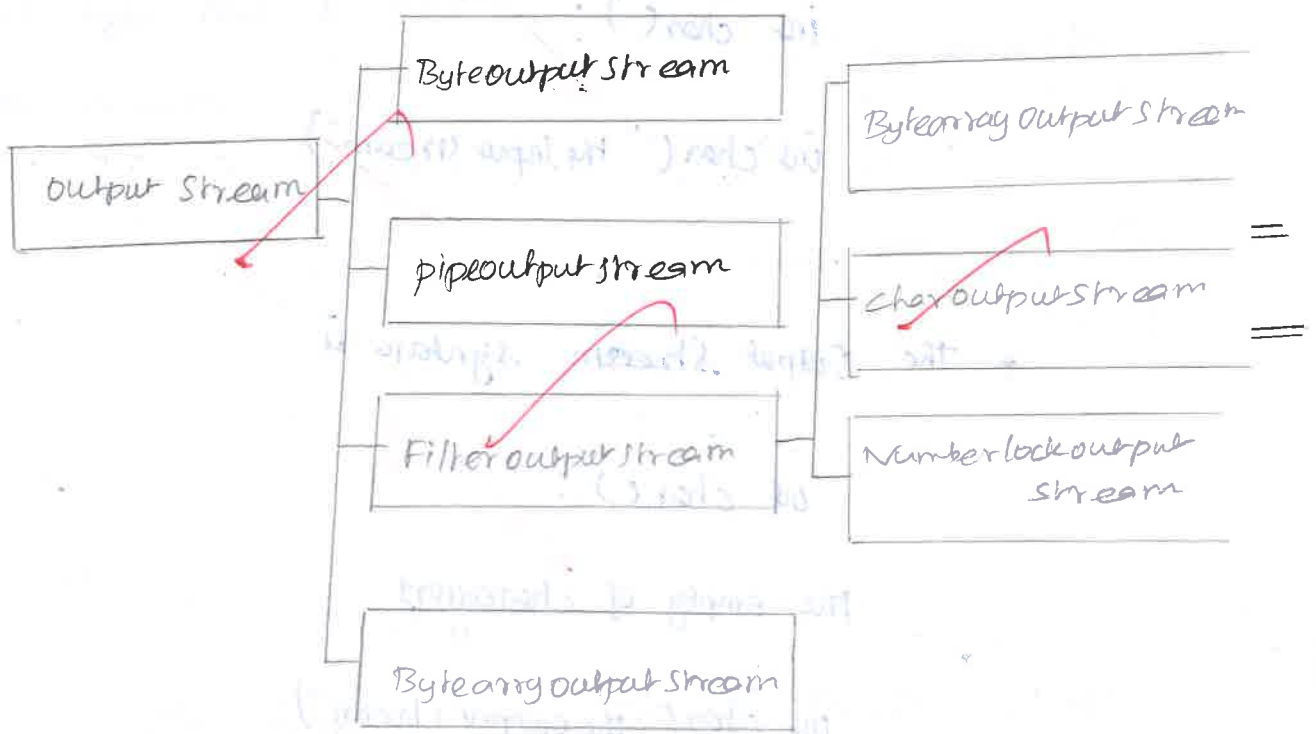 Output Stream
Byteoutput stream
pipeoutput stream
Filteroutput stream
Bytearryoutput stream
Bytearray output stream
charoutput stream
Numberlockoutput
stream